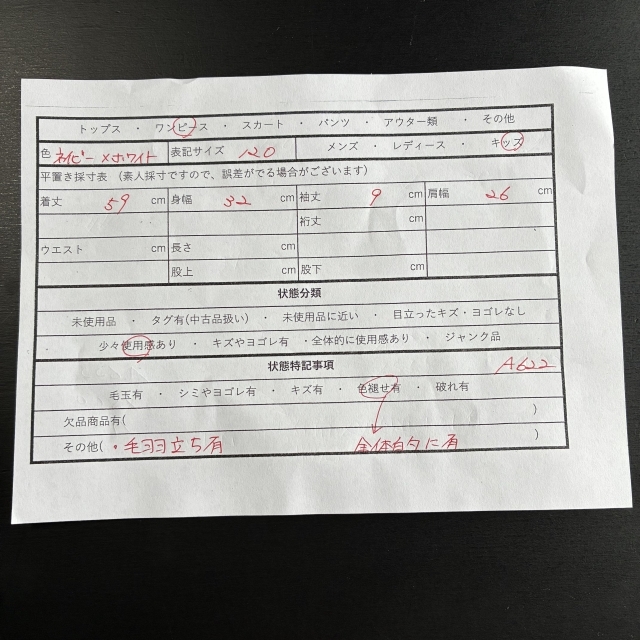 トップス ・ ワンピース ・ スカート ・ パンツ ・ アウター類 ・ その他
色 ネイビー×ホワイト 表記サイズ 120 メンズ ・ レディース ・ キッズ
平置き採寸表 (素人採寸ですので、誤差がでる場合がございます)
着丈 59 cm 身幅 32 cm 袖丈 9 cm 肩幅 26 cm
裄丈 cm
ウエスト cm 長さ cm
股上 cm 股下 cm
状態分類
未使用品 ・ タグ有(中古品扱い) ・ 未使用品に近い ・ 目立ったキズ・ヨゴレなし
少々使用感あり ・ キズやヨゴレ有 ・全体的に使用感あり ・ ジャンク品
状態特記事項 A622
毛玉有 ・ シミやヨゴレ有 ・ キズ有 ・ 色褪せ有 ・ 破れ有
欠品商品有( )
その他( ・毛羽立ち有 全体的に有 )